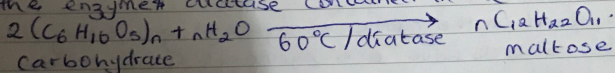 the enzyme diatase contained in
2(C6H10O5)n + nH2O 60°C/diatase nC12H22O11.
carbohydrate maltose